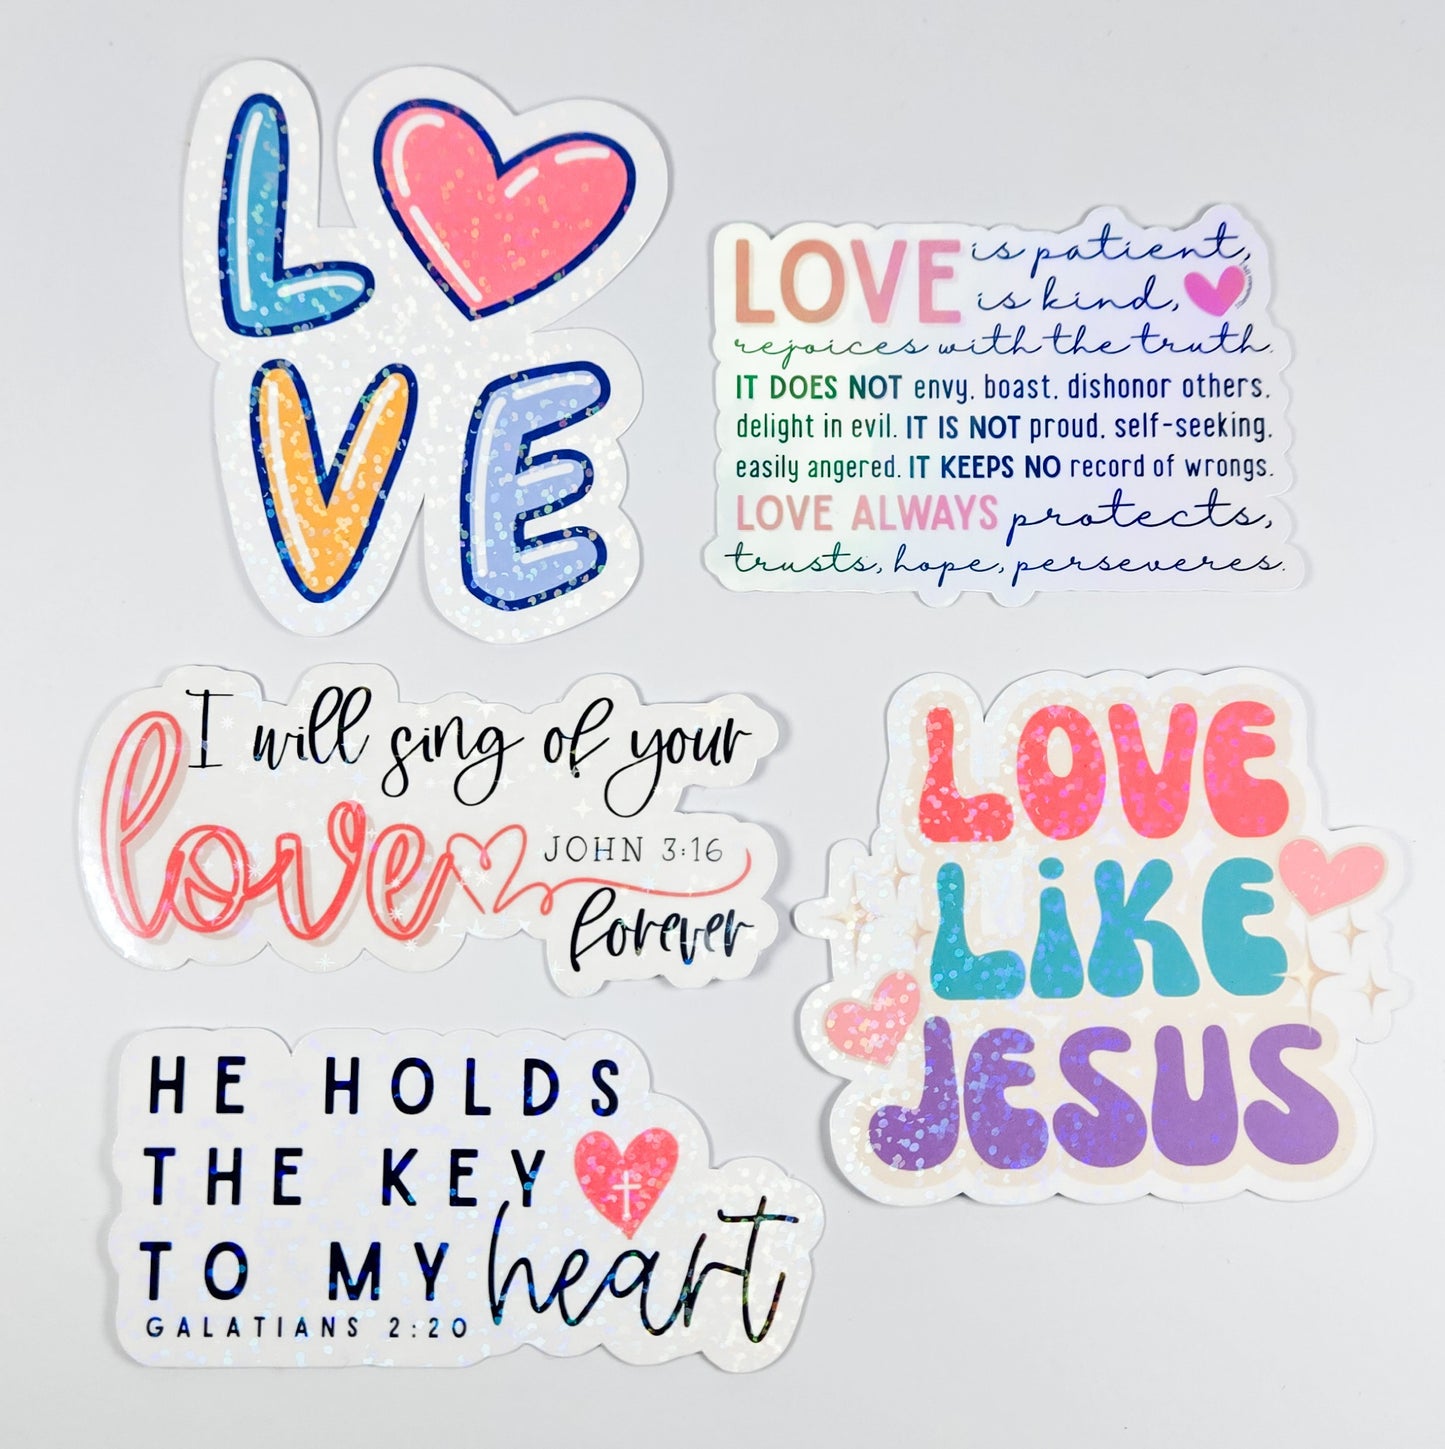 L
VE
LOVE is patient,
is kind,
rejoices with the truth.
IT DOES NOT envy, boast, dishonor others,
delight in evil. IT IS NOT proud, self-seeking,
easily angered. IT KEEPS NO record of wrongs.
LOVE ALWAYS protects,
trusts, hope, perseveres.
I will sing of your
love
JOHN 3:16
forever
LOVE
LiKE
JESUS
HE HOLDS
THE KEY
TO MY heart
GALATIANS 2:20